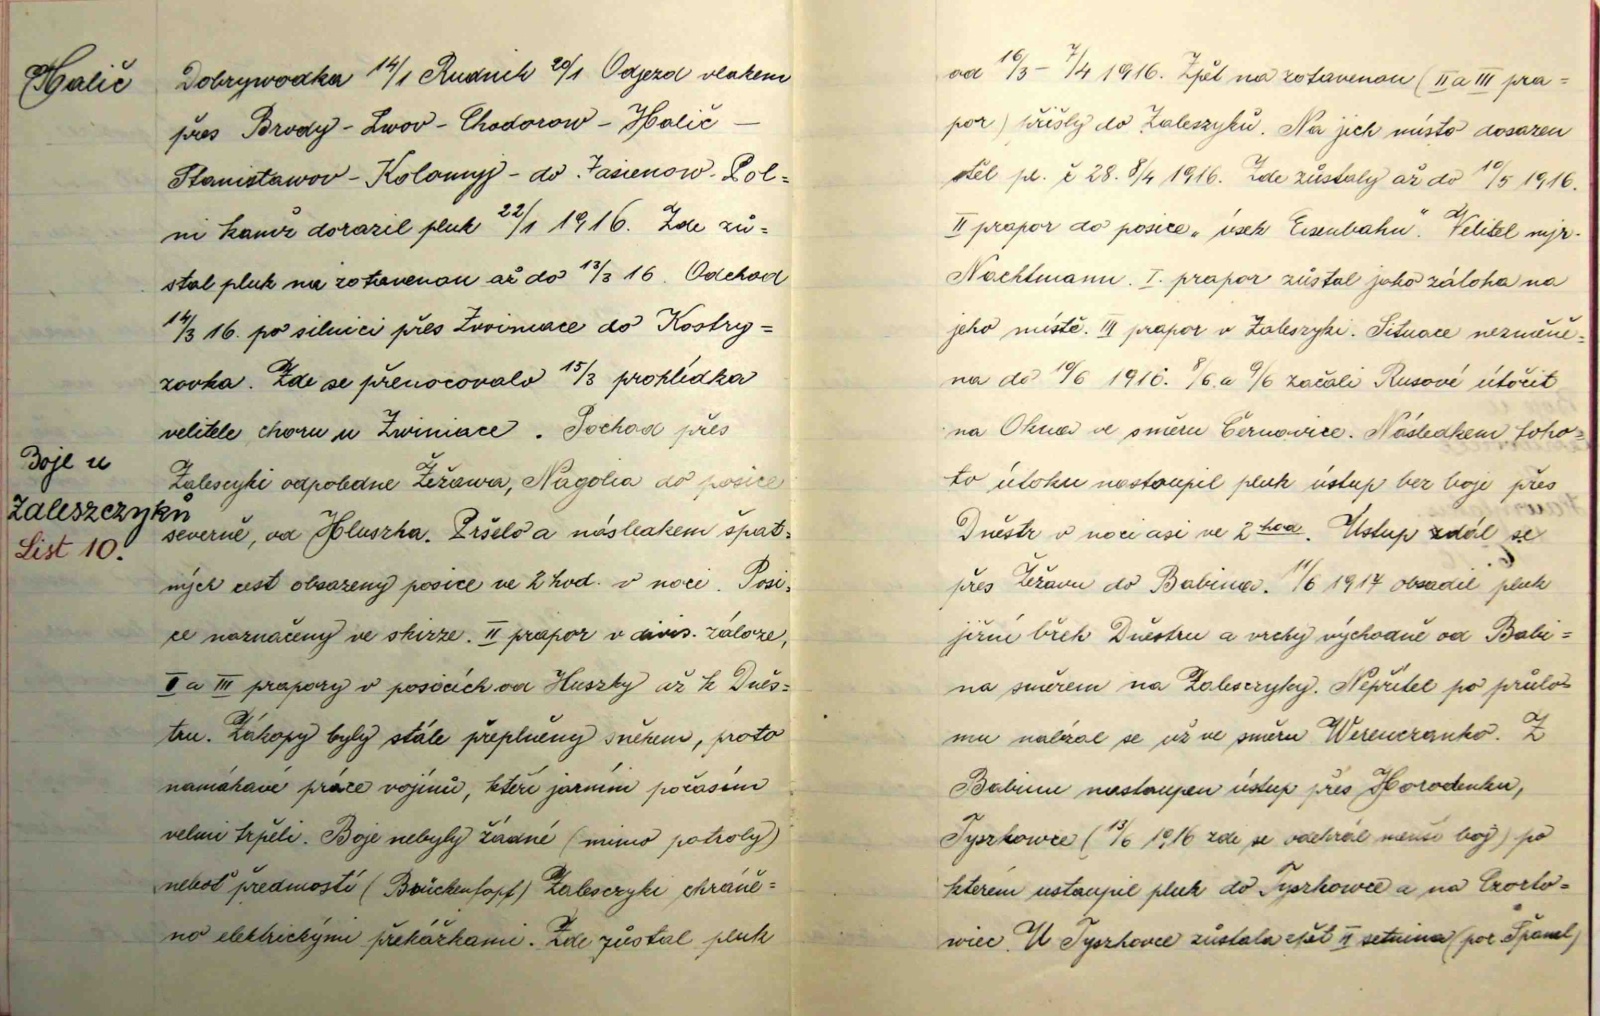 Halič
Dobrywodka 14/1 Rudnik 20/1 Odjezd vlakem
přes Brody - Lwov - Chodorow - Halič -
Stanistawov - Kolomyj - do Jasienow - Pol=
ni kamž dorazil pluk 22/1 1916. Zde zů=
stal pluk na zotavenou až do 13/3 16. Odchod
14/3 16. po silnici přes Zwiniace do Kostry=
zovka. Zde se přenocovalo 15/3 prohlídka
velitele choru u Zwiniace. Pochod přes
Boje u
Zaleszczyků
List 10.
Zalescyki odpoledne Žežawa, Nagolia do posice
severně, od Hluszka. Pršelo a následkem špat=
ných cest obsazeny posice ve 2 hod. v noci. Posi=
ce naznačeny ve skizze. II prapor v divis. záloze,
I a III prapory v posicích od Huszky až k Dněs=
tru. Zákopy byly stále přeplněny sněhem, proto
namáhavé práce vojínů, kteří jarním počasím
velmi trpěli. Boje nebyly žádné (mimo patroly)
neboť předmostí (Brückenkopf) Zalesczyki chráně=
no elektrickými překážkami. Zde zůstal pluk
od 16/3 - 7/4 1916. Zpět na zotavenou (II a III pra=
por) přišly do Zaleszyků. Na jich místo dosazen
střel pl. č 28. 8/4 1916. Zde zůstaly až do 10/5 1916.
II prapor do posice „úsek Eisenbahn". Velitel mjr.
Nachtmann. I. prapor zůstal jako záloha na
jeho místě. III prapor v Zaleszyki. Situace nezměně=
na do 10/6 1916. 8/6. a 9/6 začali Rusové útočit
na Okna ve směru Černovice. Následkem toho=
to útoku nastoupil pluk ústup bez boje přes
Dněstr v noci asi ve 2 hod. Ústup zdál se
přes Žežavu do Babina. 11/6 1917 obsadil pluk
jižní břeh Dněstru a vrchy východně od Babi=
na směrem na Zalesczyky. Nepřítel po průlo=
mu nalézal se už ve směru Werenczanko. Z
Babinu nastoupen ústup přes Horodenku,
Tyszkowce (13/6 1916 zde se odehrál menší boj) po
kterém ustoupil pluk do Tyszkowce a na Czorto=
wiec. U Tyszkovce zůstala zpět II setnina (por. Španel)